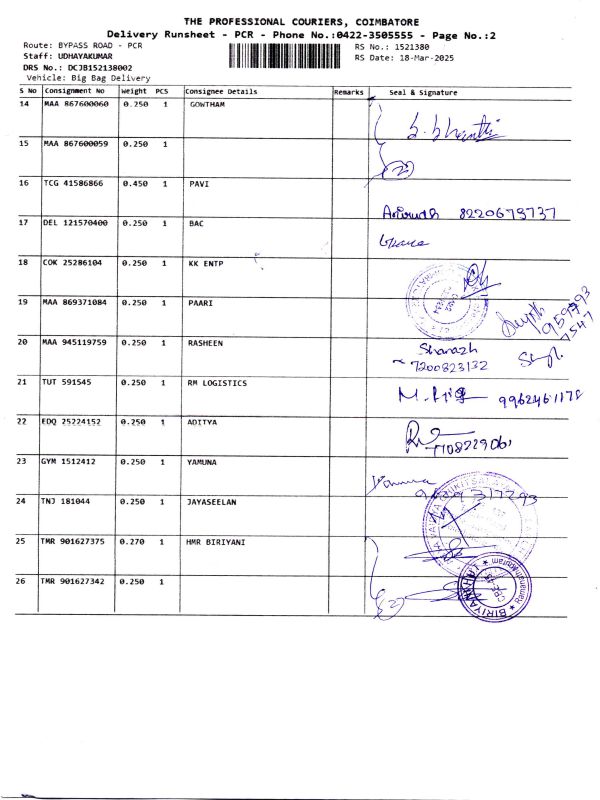 THE PROFESSIONAL COURIERS, COIMBATORE
Delivery Runsheet - PCR - Phone No.:0422-3505555 - Page No.:2
Route: BYPASS ROAD - PCR
RS No.: 1521380
Staff: UDHAYAKUMAR
RS Date: 18-Mar-2025
DRS No.: DCJB152138002
Vehicle: Big Bag Delivery
S No Consignment No Weight PCS Consignee Details Remarks Seal & Signature
14 MAA 867600060 0.250 1 GOWTHAM
15 MAA 867600059 0.250 1
(2)
16 TCG 41586866 0.450 1 PAVI
Anirudh 8220673737
17 DEL 121570400 0.250 1 BAC
18 COK 25286104 0.250 1 KK ENTP
19 MAA 869371084 0.250 1 PAARI
20 MAA 945119759 0.250 1 RASHEEN
7200823132
21 TUT 591545 0.250 1 RM LOGISTICS
22 EDQ 25224152 0.250 1 ADITYA
23 GYM 1512412 0.250 1 YAMUNA
Yamuna
24 TNJ 181044 0.250 1 JAYASEELAN
25 TMR 901627375 0.270 1 HMR BIRIYANI
26 TMR 901627342 0.250 1
(2)